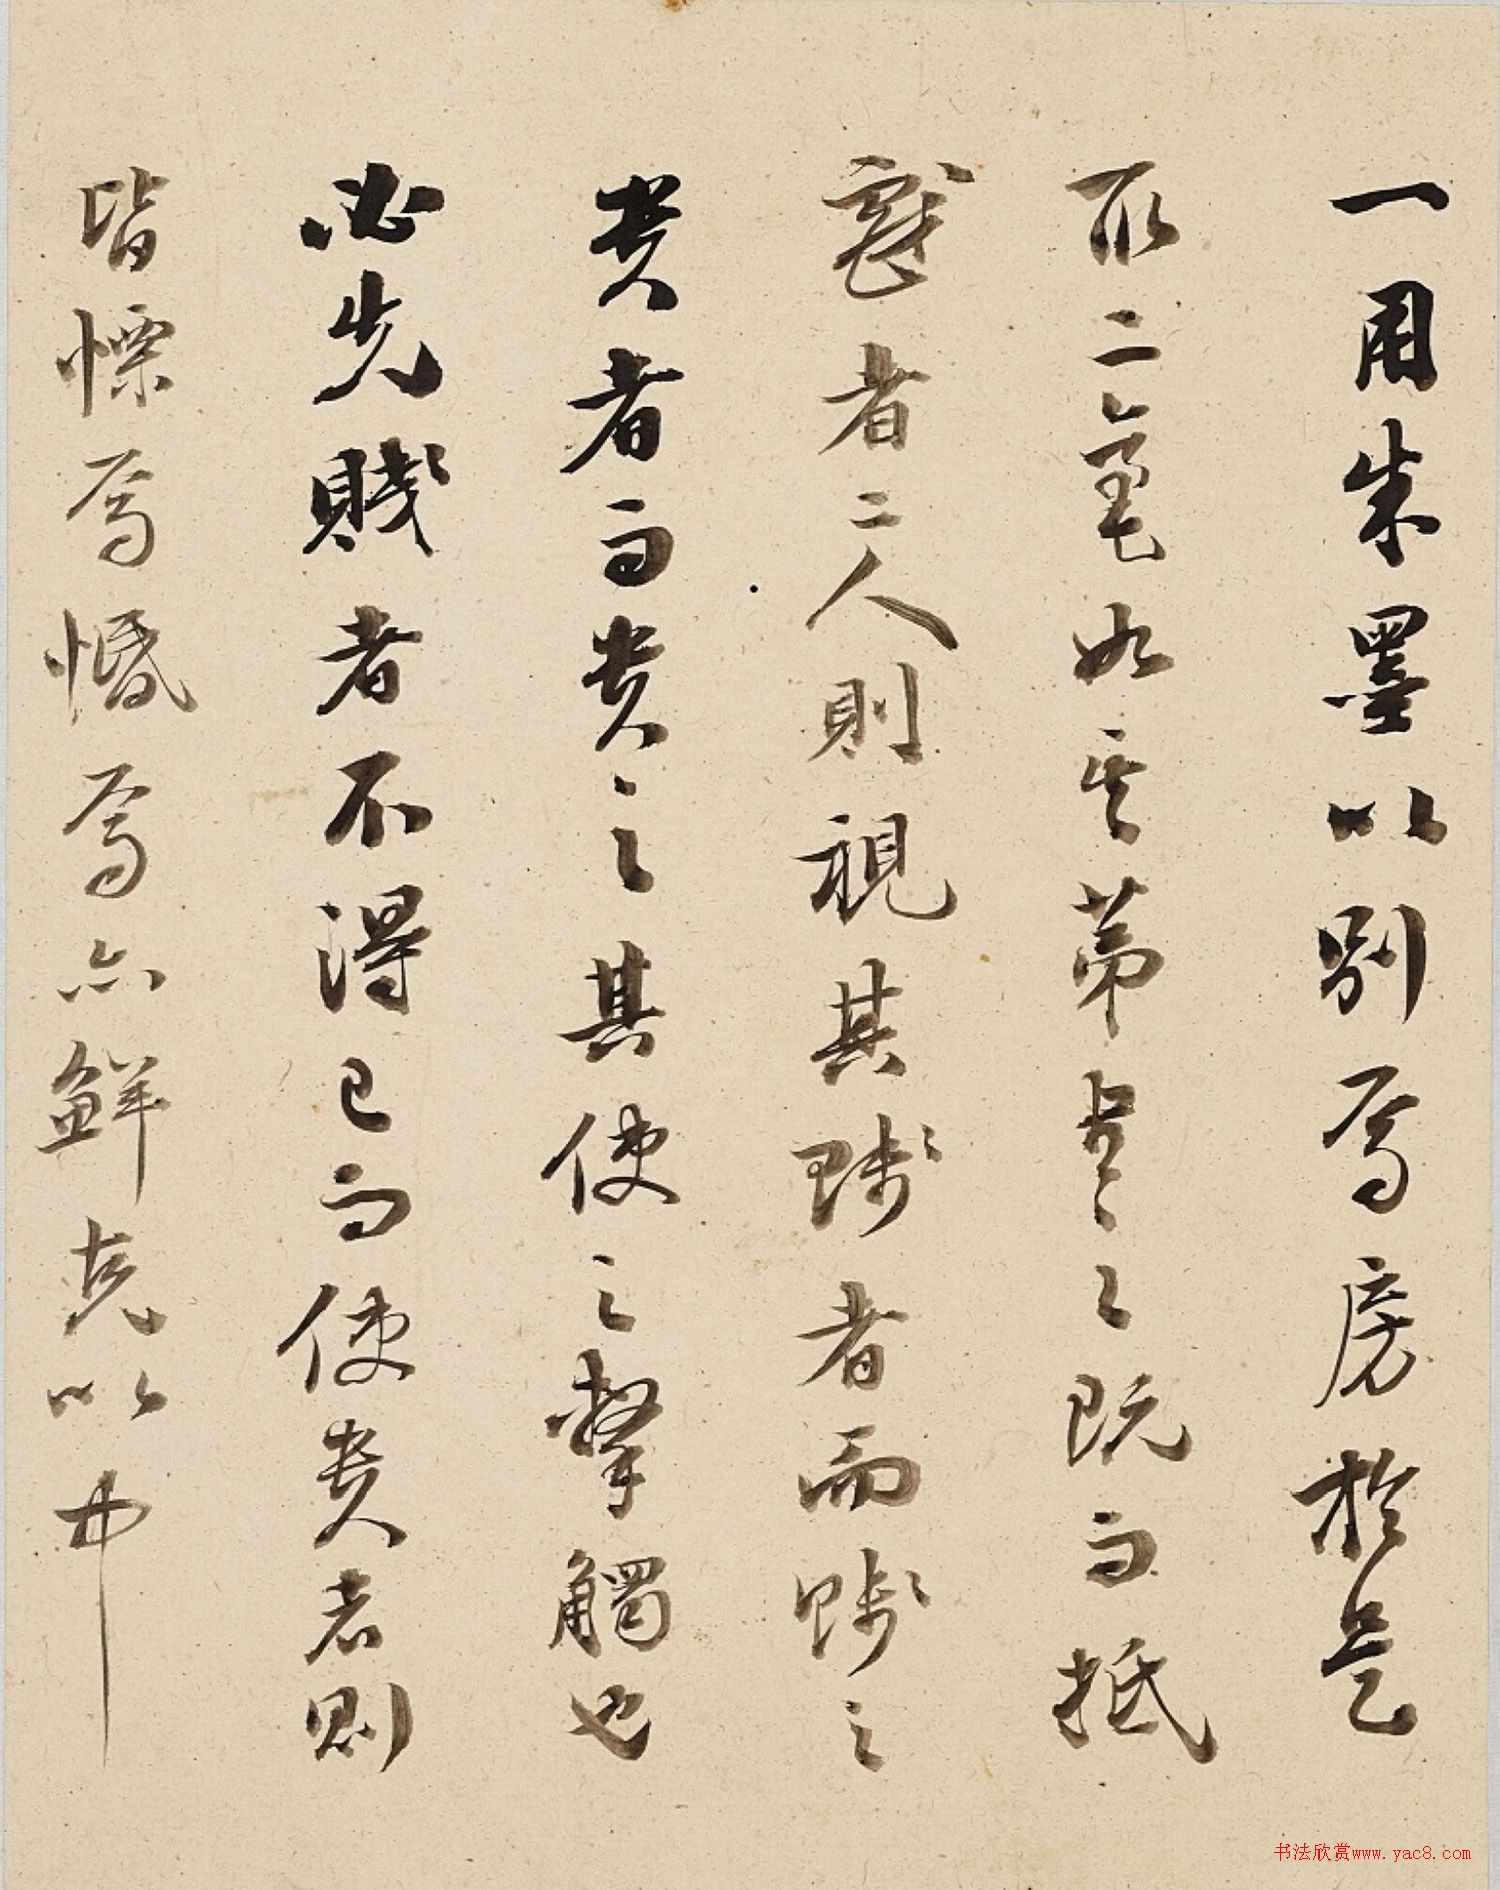 一用朱墨以別焉房於是
取二毫如其第書之既而抵
戲者二人則視其賤者而賤之
貴者而貴之其使之擊觸也
必先賤者不得已而使貴者則
皆慄焉惛焉亦鮮克以中
书法欣赏www.yac8.com